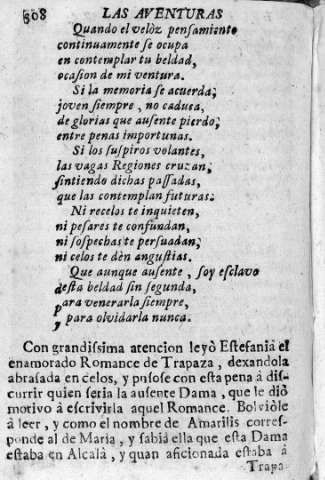 308 LAS AVENTURAS
Quando el velòz pensamiento
continuamente se ocupa
en contemplar tu beldad,
ocasion de mi ventura.
Si la memoria se acuerda;
joven siempre, no caduca,
de glorias que ausente pierdo;
entre penas importunas.
Si los suspiros volantes,
las vagas Regiones cruzan;
sintiendo dichas passadas,
que las contemplan futuras.
Ni recelos te inquieten,
ni pesares te confundan,
ni sospechas te persuadan;
ni celos te dèn angustias.
Que aunque ausente, soy esclavo
desta beldad sin segunda,
para venerarla siempre,
y para olvidarla nunca.
Con grandissima atencion leyò Estefania el
enamorado Romance de Trapaza, dexandola
abrasada en celos, y pusose con esta pena à dis-
currir quien seria la ausente Dama, que le diò
motivo à escrivirla aquel Romance. Bolviòle
à leer, y como el nombre de Amarilis corres-
ponde al de Maria, y sabia ella que esta Dama
estaba en Alcalà, y quan aficionada estaba à
Trapa-